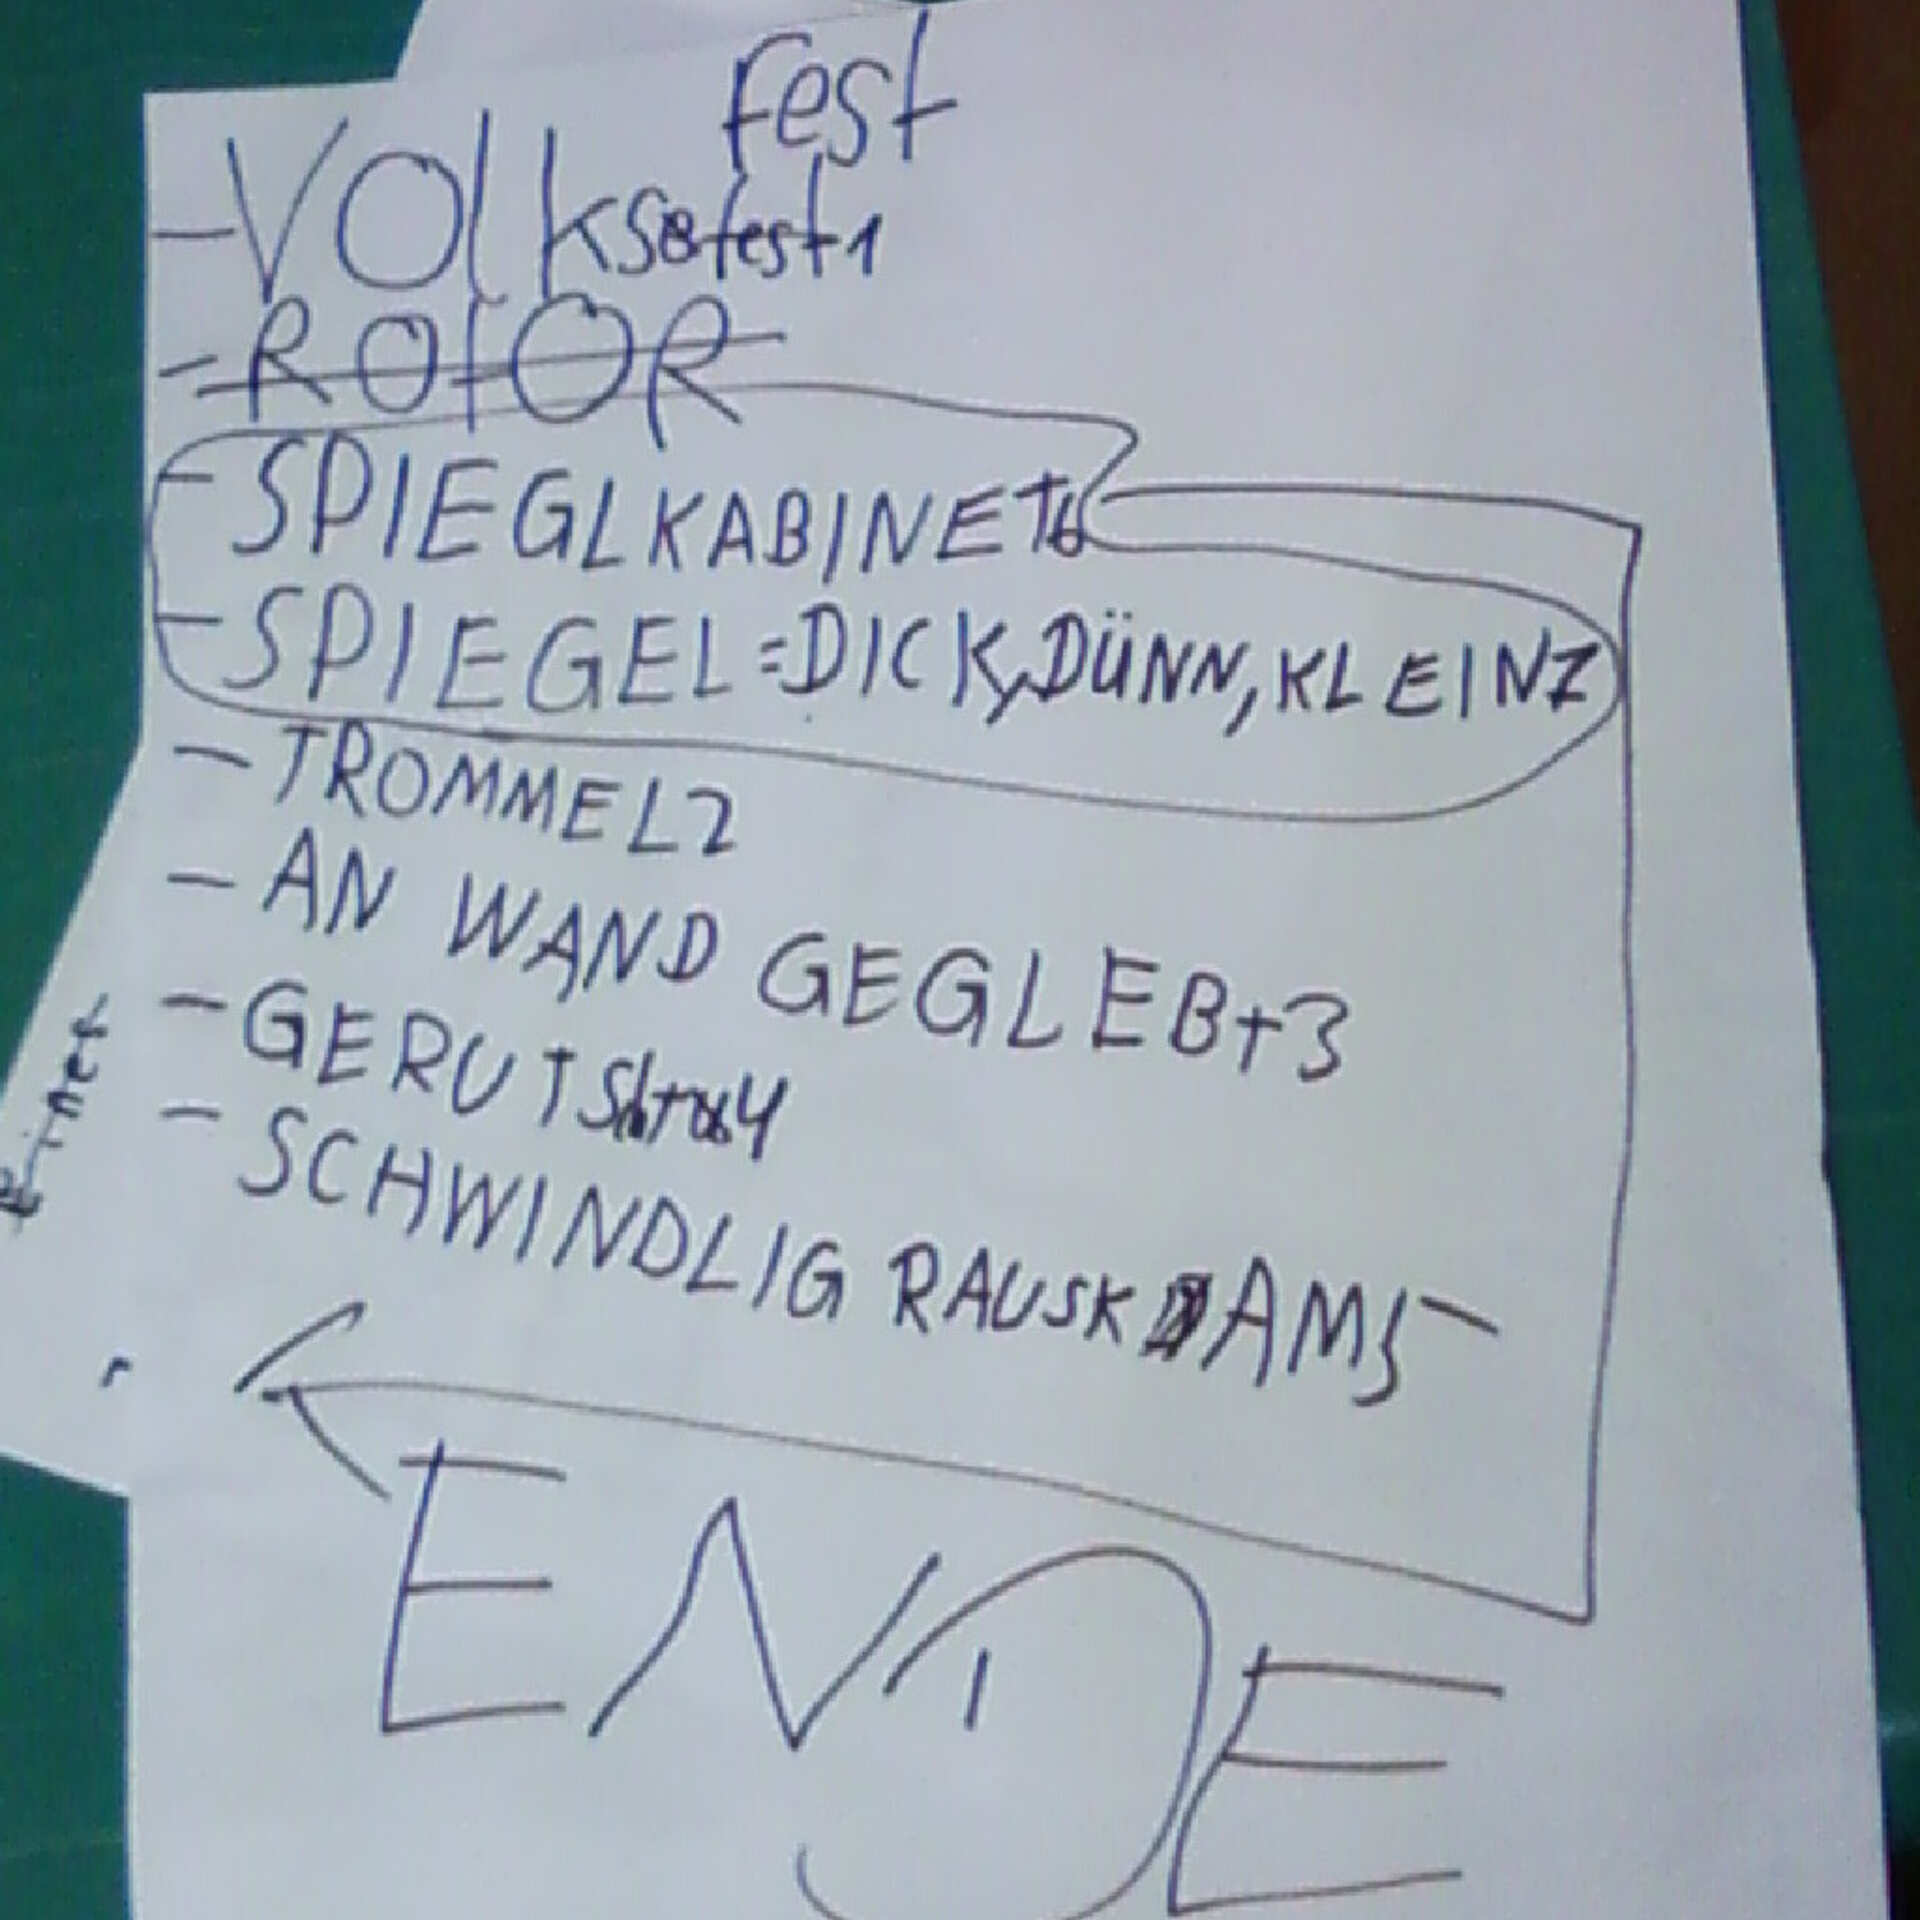 Fest
- VOlksfest 1
- ROTOR
- SPIEGLKABINET 6
- SPIEGEL = DICK, DÜNN, KLEIN 7
- TROMMEL 2
- AN WAND GEGLEBT 3
- GERUTSHT 4
- SCHWINDLIG RAUSKAM 5 -
ENDE